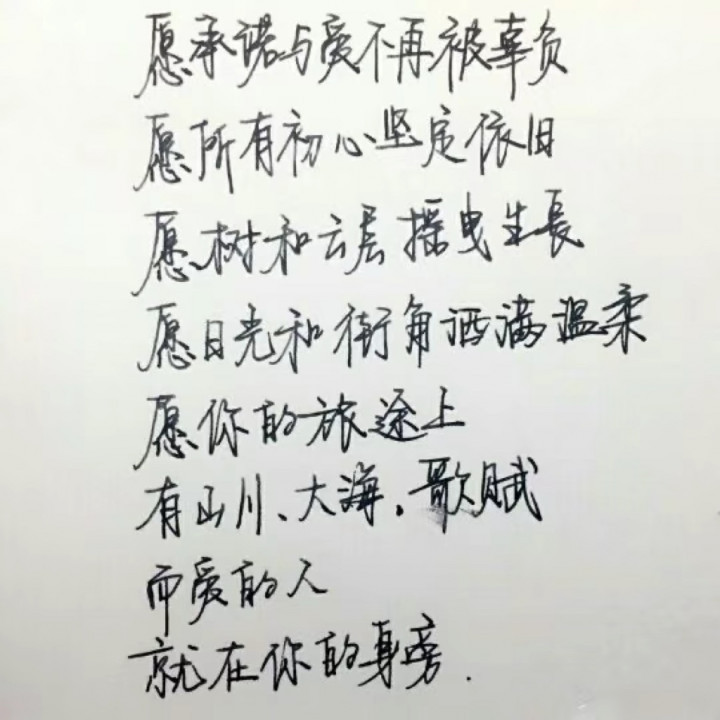 愿承诺与爱不再被辜负
愿所有初心坚定依旧
愿树和云层摇曳生長
愿日光和街角洒满温柔
愿你的旅途上
有山川、大海,歌赋
而爱的人
就在你的身旁.